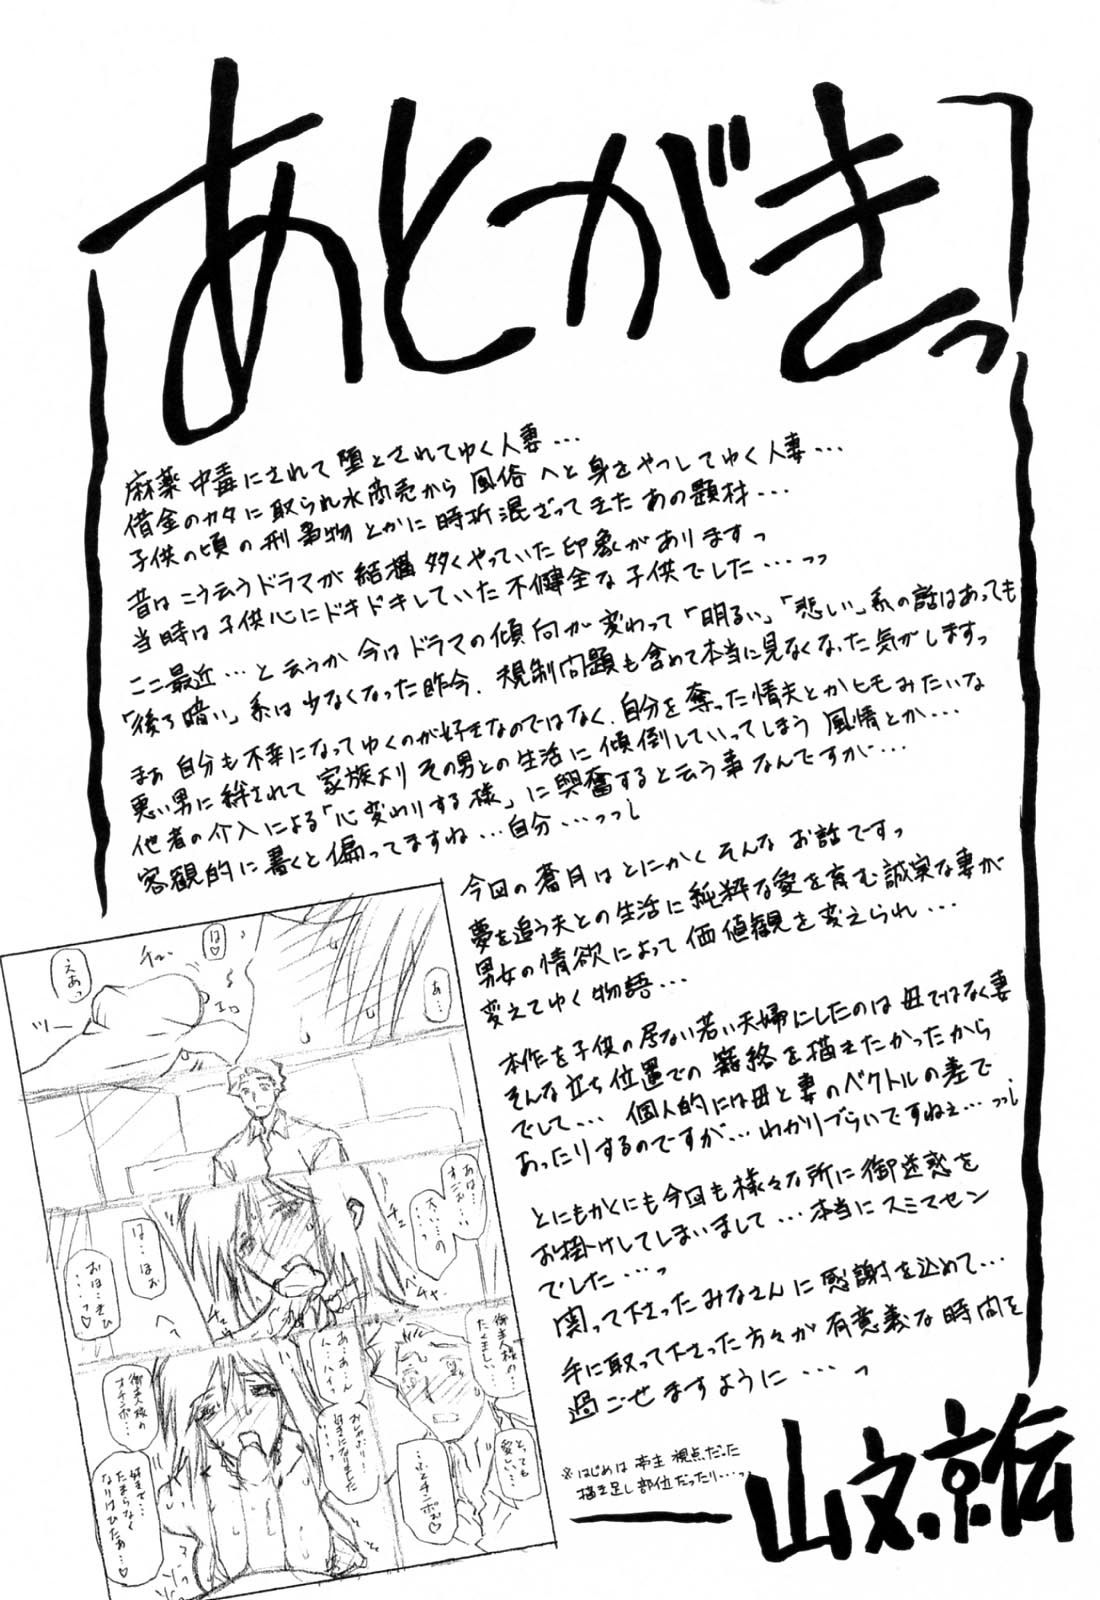 あとがきっ
麻薬中毒にされて堕とされてゆく人妻・・・
借金のカタに取られ水商売から風俗へと身をやつしてゆく人妻・・・
子供の頃の刑事物とかに時折混ざってきたあの題材・・・
昔はこう云うドラマが結構多くやっていた印象がありますっ
当時は子供心にドキドキしていた不健全な子供でした・・・っっ
ここ最近・・・と云うか今はドラマの傾向が変わって「明るい」「悲しい」系の話はあっても
「後ろ暗い」系は少なくなった昨今、規制問題も含めて本当に見なくなった気がしますっ
まぁ自分も不幸になってゆくのが好きなのではなく、自分を奪った情夫とかヒモみたいな
悪い男に絆されて家族よりその男との生活に傾倒していってしまう風情とか・・・
他者の介入による「心変わりする様」に興奮すると云う事なんですが・・・
客観的に書くと偏ってますね・・・自分・・・っっ
今回の蒼月はとにかくそんなお話ですっ
夢を追う夫との生活に純粋な愛を育む誠実な妻が
男女の情欲によって価値観を変えられ・・・
変えてゆく物語・・・
本作を子供の居ない若い夫婦にしたのは母ではなく妻
そんな立ち位置での寝絡を描きたかったから
でして・・・個人的には母と妻のベクトルの差で
あったりするのですが・・・わかりづらいですねぇ・・・っっ
とにもかくにも今回も様々な所に御迷惑を
お掛けしてしまいまして・・・本当にスミマセン
でした・・・っ
関って下さったみなさんに感謝を込めて・・・
手に取って下さった方々が有意義な時間を
過ごせますように・・・っ
※はじめは亭主視点だった
描き足し部位だったり・・・っ
山文京伝